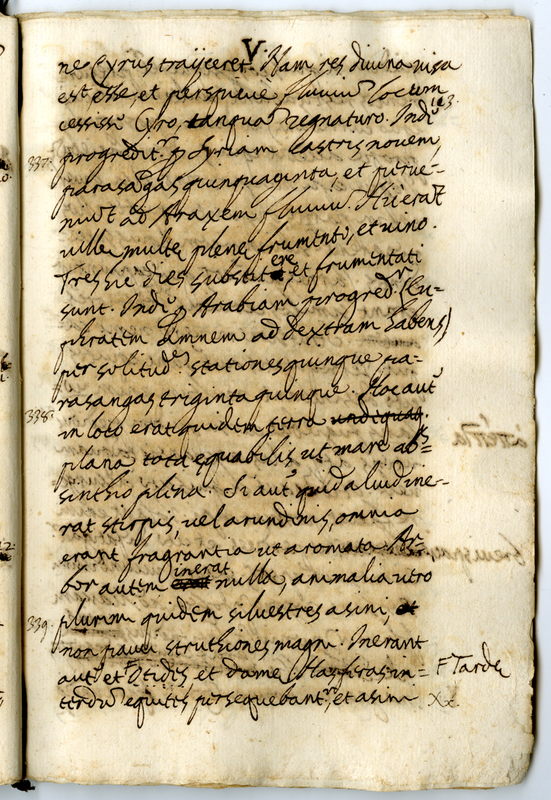 V.
ne Cyrus traijceret. Nam res divina visa
est esse, et perspicuè fluviū locum
cessisse Cyro, tanquā regnaturo. Indè
123.
337. progredit.r p Syriam Castris novem,
parasāgas quinquaginta, et perve-
niūt ad Araxem fluviū. Hic erāt
ville multe plene frumenti, et vino.
Tres hic dies substitere, et frumentati
sunt. Indè p Arabiam progred.r (Eu-
phratem Amnem ad dextram habens)
per solitud.es stationes quinque pa-
rasangas triginta quinque. Hoc autē
338. in loco erat quidem terra undequaq.
plana tota equabilis ut mare ab=
sinthio plena. Si autē quid aliud ine-
rat stirpis, vel arundinis, omnia
erant fragrantia ut aromata Ar-
bor autem inerat nulla, animalia vero
339. plurimi quidem silvestres asini, et
non pauci struthiones magni. Inerant
autē et Otides et dame. Has feras in- F Tarde
terdū equites persequebant.r, et asini